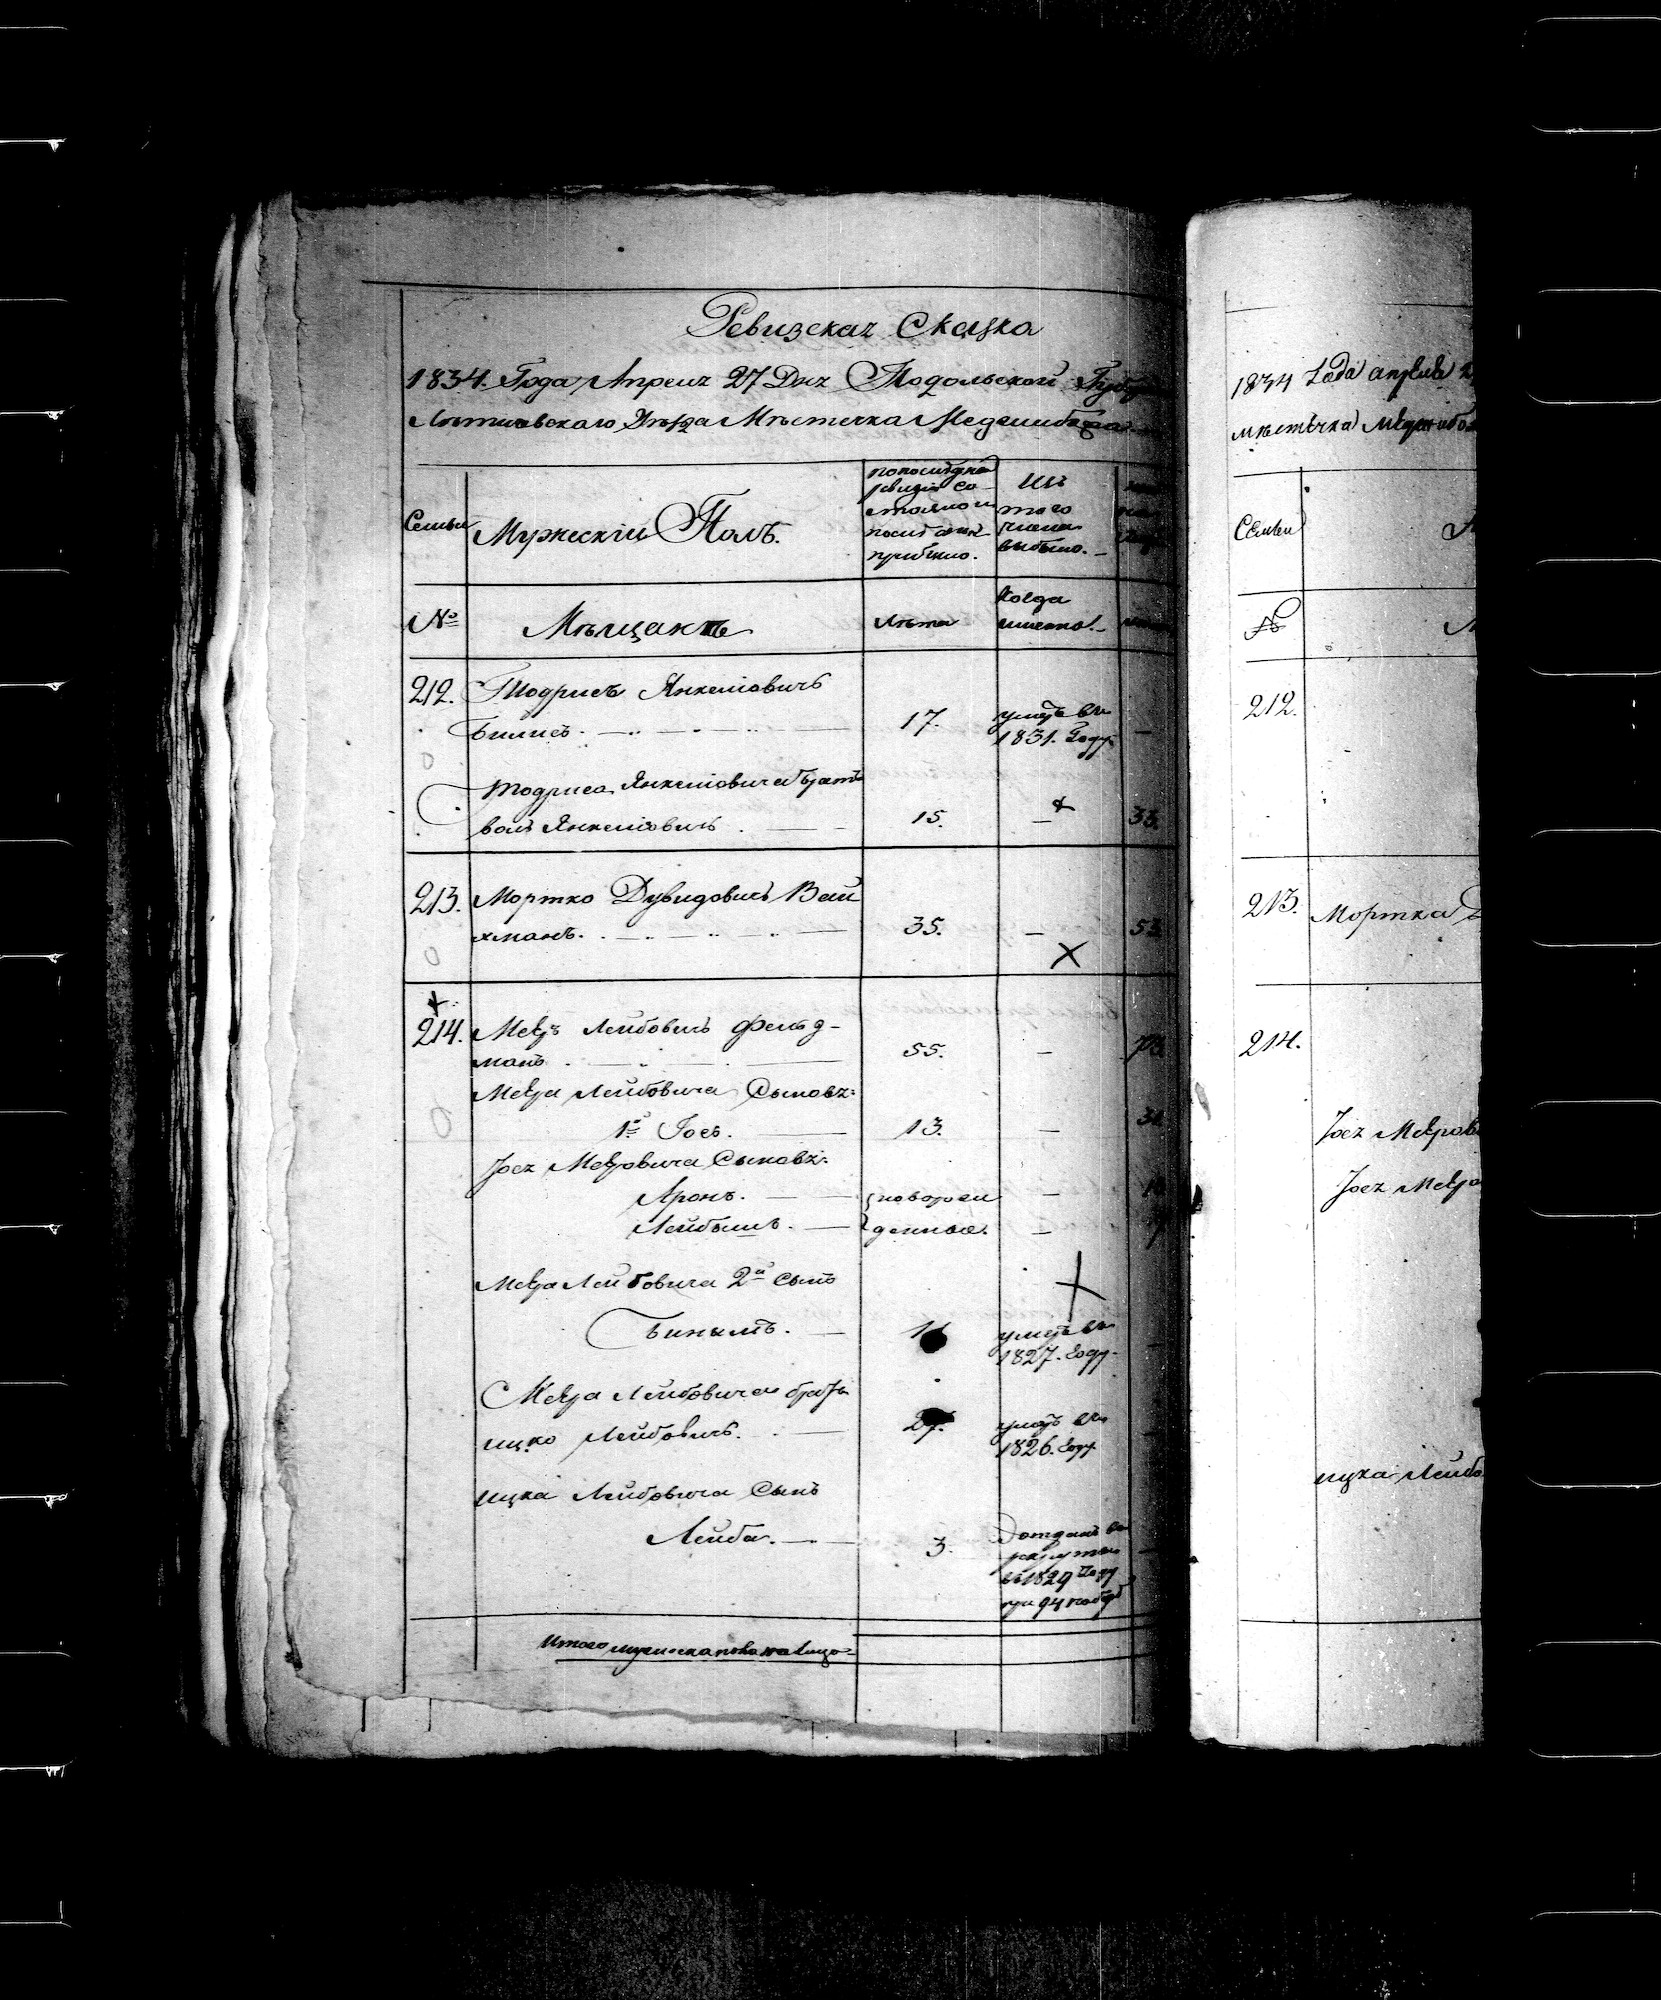 Ревизская Сказка
1834. Года Апреля 27 Дня Подольской
Летичевского Уезда Местечка
Семьи
Мужескій Полъ.
по последней
ревизіи со-
стояло и
после
прибыло.
Изъ
того
числа
выбыло.
№
Мещане
Лета
Когда
именно.
212. Тодрисъ Янкелiовичъ
17.
умеръ въ
1831. Году
Тодриса Янкелiовича братъ
Янкелiовичъ
15.
33.
213. Мортко Дувидовичъ Вай
хманъ.
35.
53
214. Мееръ Лейбовичъ Фельд-
манъ
55.
73
Меера Лейбовича Сыновья:
1й Іось.
13.
31
Лейбышъ.
Аронъ.
новорож
денные.
Меера Лейбовича 2й сынъ
умеръ въ
1827. Году
Меера Лейбовича братъ
Ицко Лейбовичъ.
27.
умеръ въ
1826. Году
Ицка Лейбовича Сынъ
Лейба.
3.
отданъ въ
рекруты
въ 1829 Году
Итого мужеска пола на лицо
1834 Года апреля 2
местечка
Семьи
№
212.
213. Мортка
214.
Ицка Лейбо